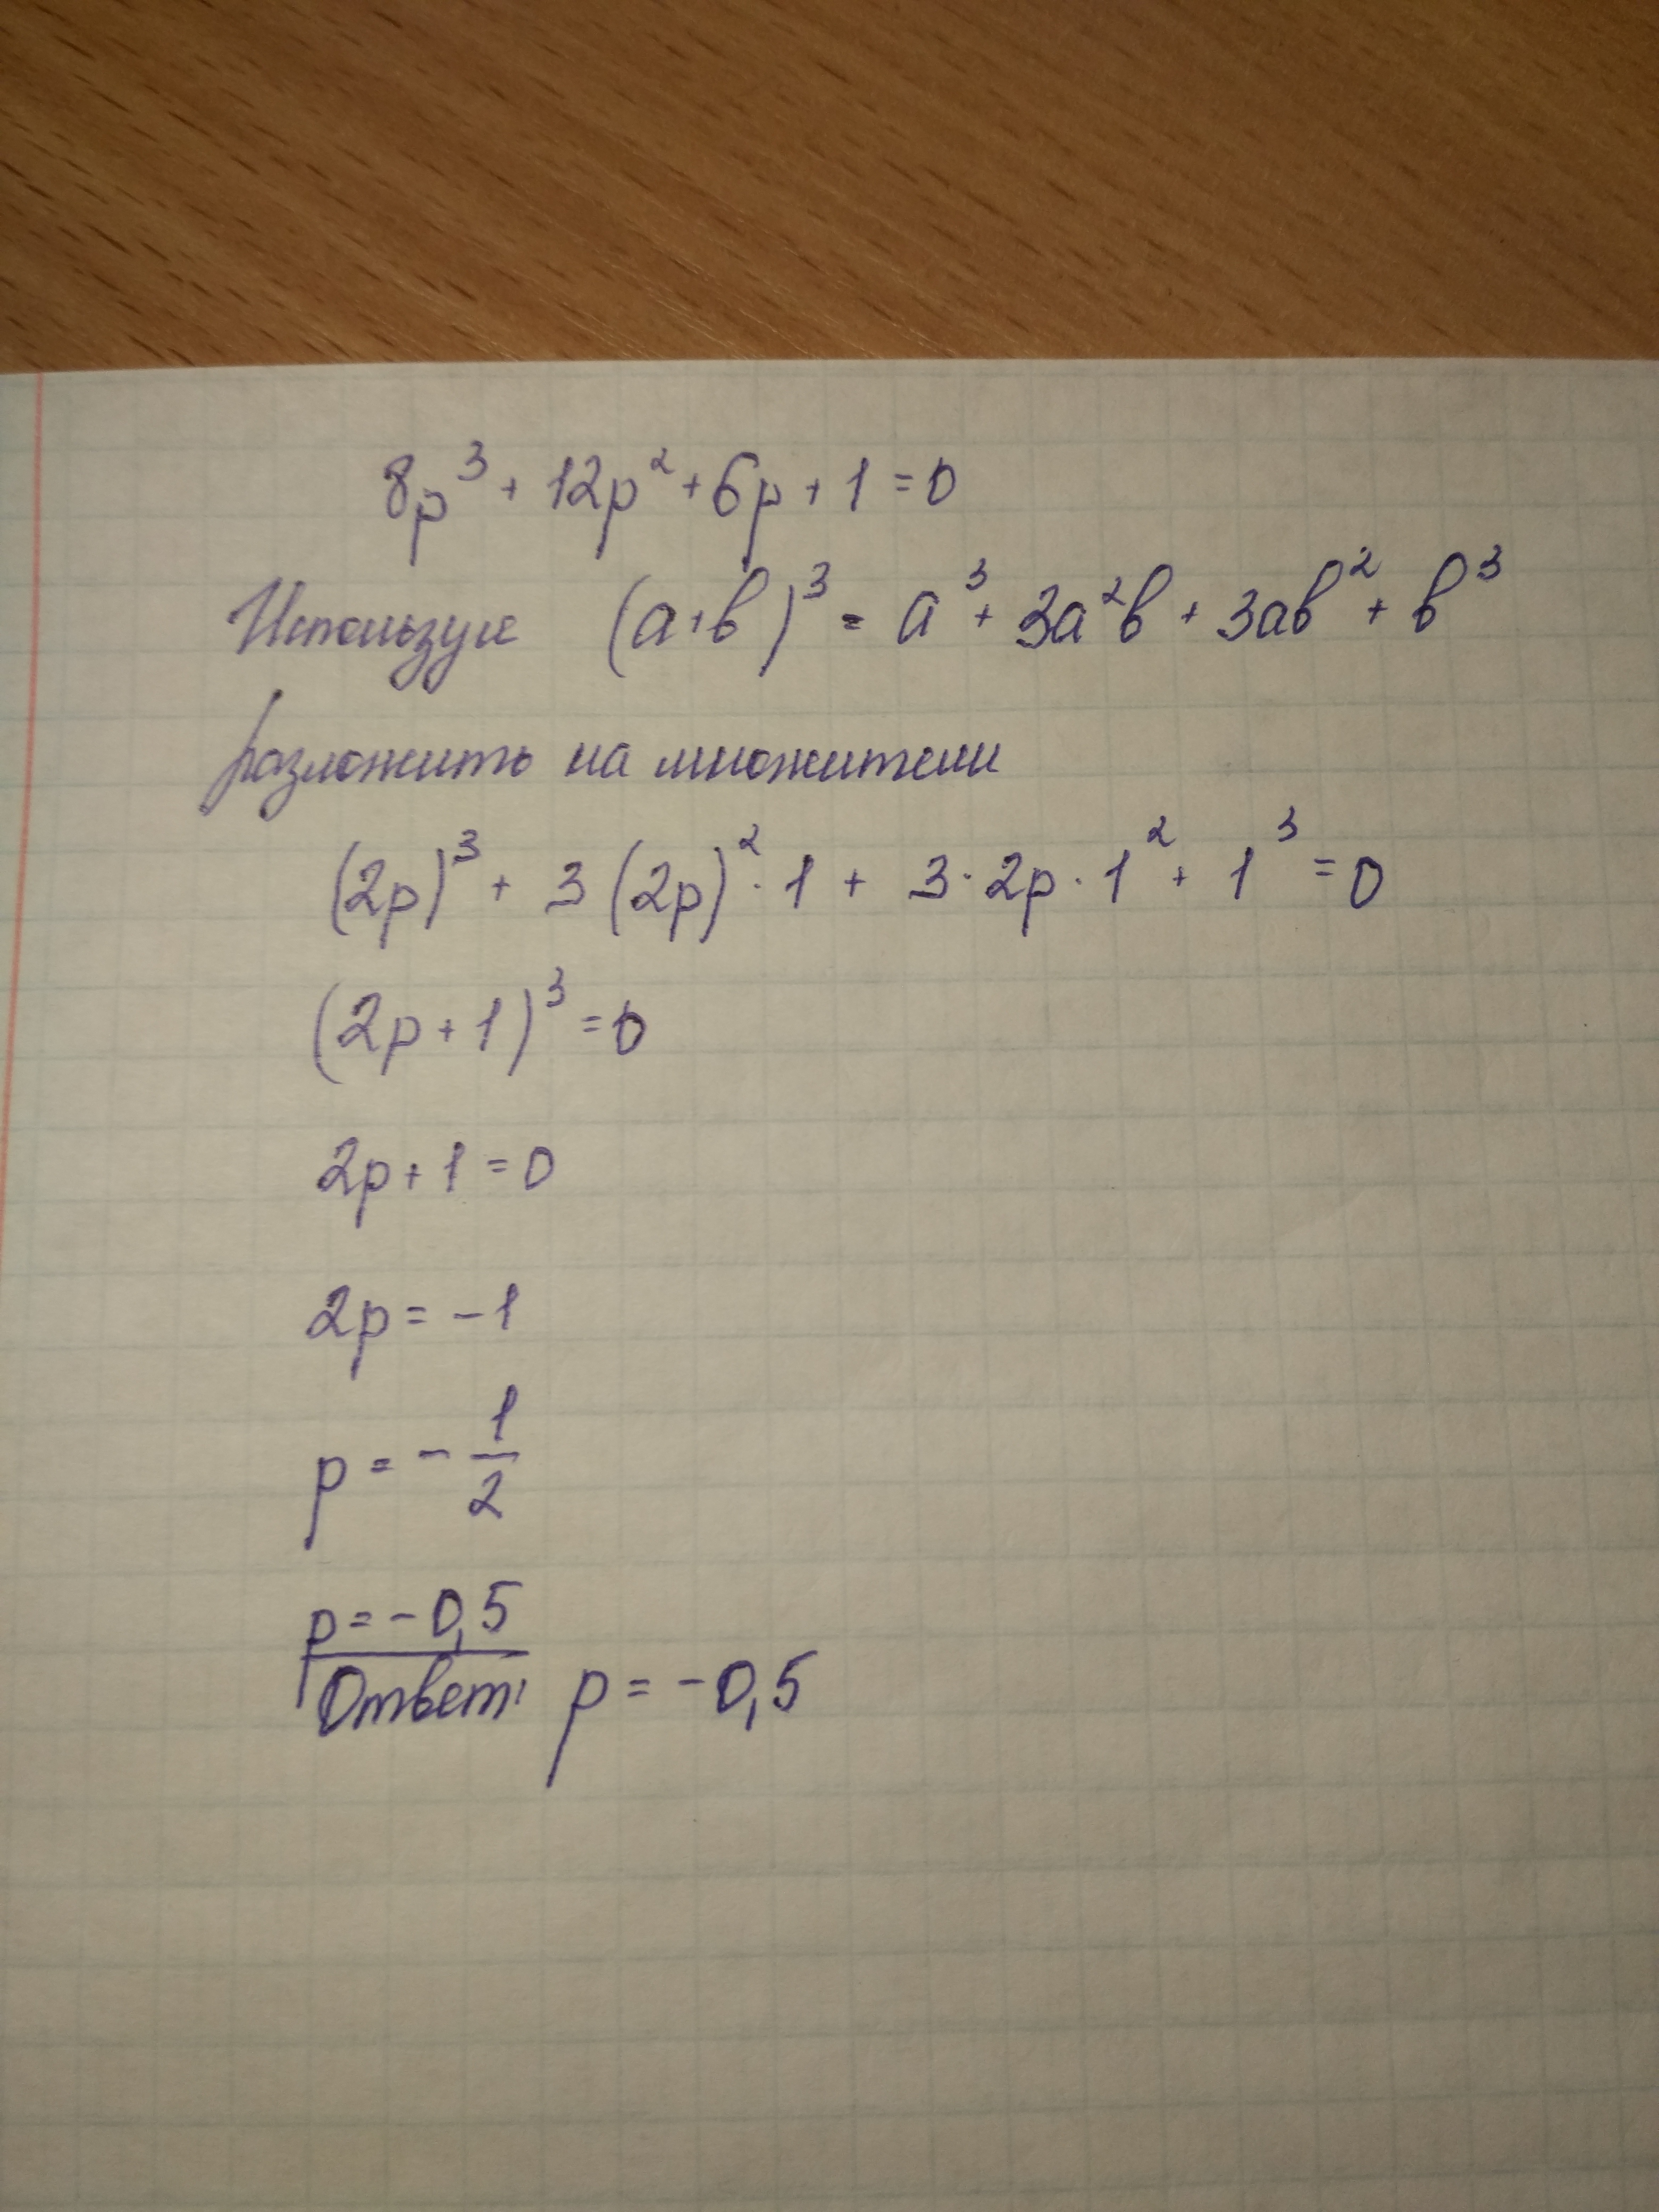 8p³ + 12p² + 6p + 1 = 0
Используя (a+b)³ = a³ + 3a²b + 3ab² + b³
разложить на множители
(2p)³ + 3(2p)² · 1 + 3 · 2p · 1² + 1³ = 0
(2p + 1)³ = 0
2p + 1 = 0
2p = -1
p = - 1/2
p = -0,5
Ответ: p = -0,5